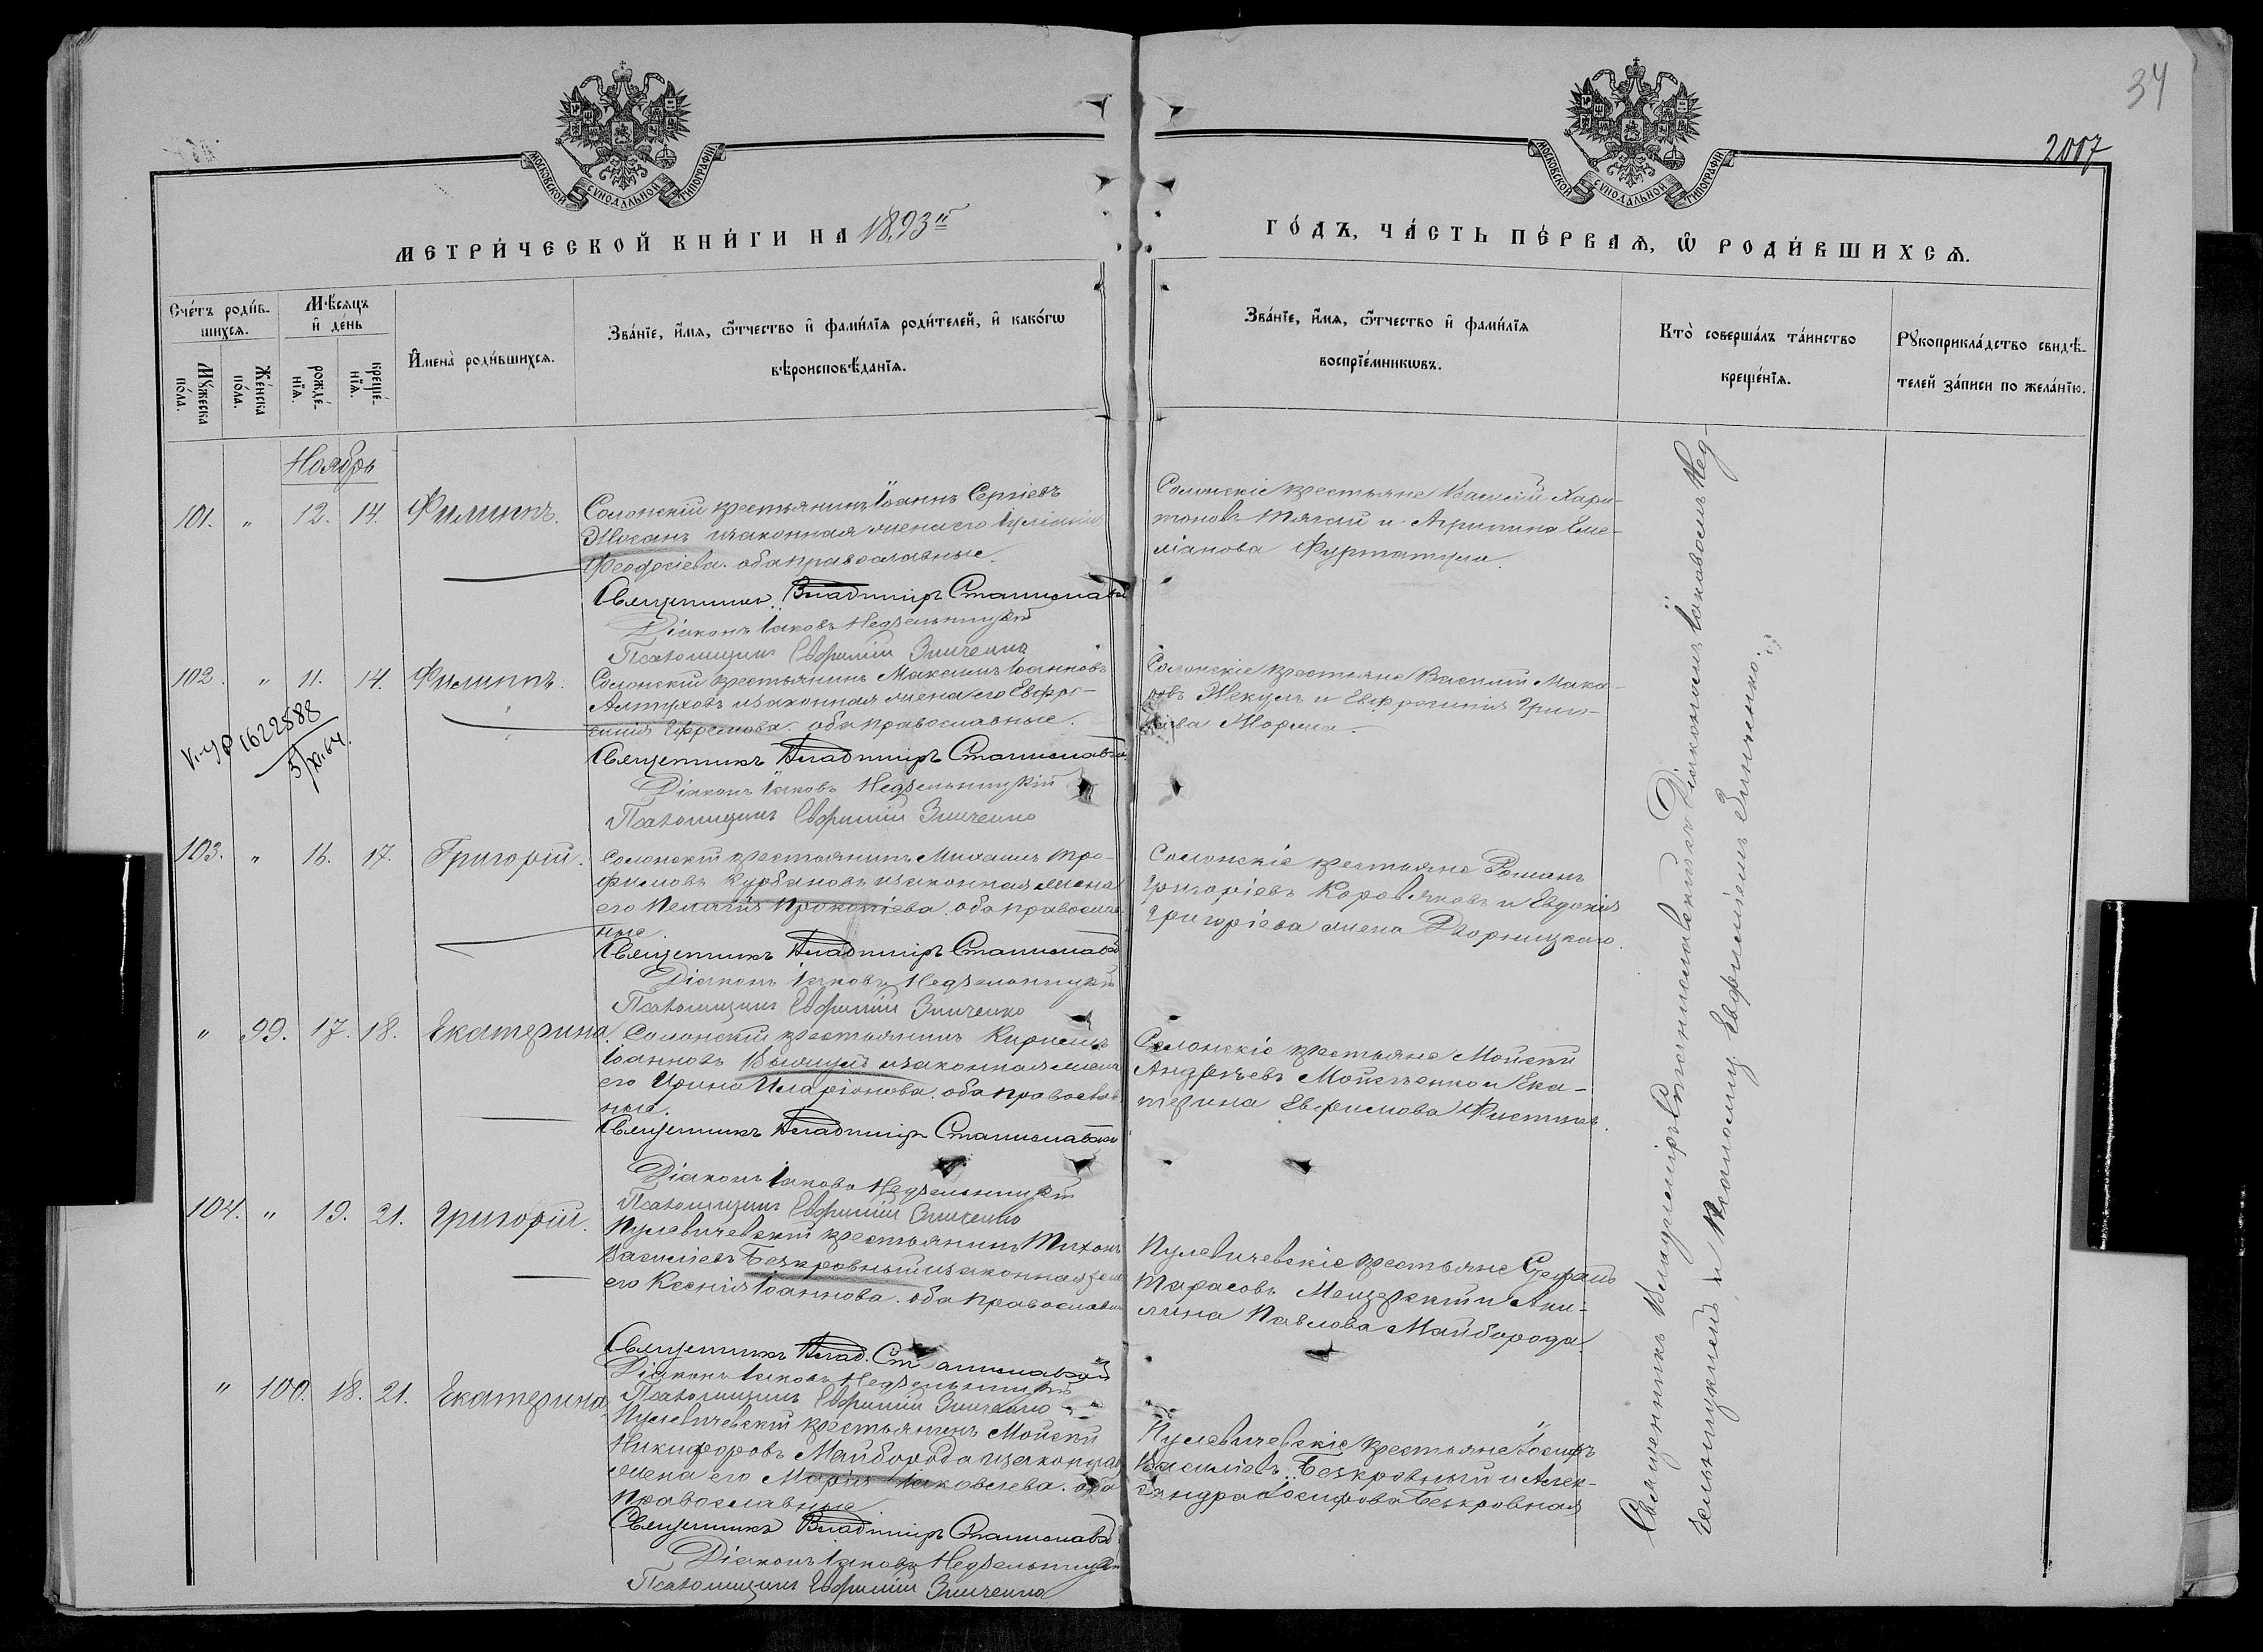 34
2007
МОСКОВСКОЙ СѴНОДАЛЬНОЙ ТИПОГРАФІИ
МОСКОВСКОЙ СѴНОДАЛЬНОЙ ТИПОГРАФІИ
МЕТРИ́ЧЕСКОЙ КНИ́ГИ НА 1893й
ГО́ДЪ, ЧА́СТЬ ПЕ́РВАѦ, Ѡ РОДИ́ВШИХСѦ.
Сче́тъ роди́в-
шихсѧ.
Мꙋ́жеска по́ла.
Же́нска по́ла.
Мѣ́сѧцъ
и҆ де́нь
рожде́-
нїѧ.
креще́-
нїѧ.
И҆мена̀ роди́вшихсѧ.
Зва́нїе, и҆́мѧ, ѻ҆́тчество и҆ фами́лїѧ роди́телей, и҆ како́гѡ
вѣроисповѣ́данїѧ.
Зва́нїе, и҆́мѧ, ѻ҆́тчество и҆ фами́лїѧ
воспрїе́мникѡвъ.
Кто̀ соверша́лъ та́инство
креще́нїѧ.
Рꙋкоприкла́дство свидѣ́-
телей за́писи по жела́нїю.
Ноябрь
101. " 12. 14. Филиппъ.
Солонскій крестьянинъ Іоаннъ Сергіевъ
изаконная жена его
Феодосіева. оба православные.
Священникъ Владиміръ Станиславскій
Діаконъ Іаковъ Недзельницкій
Псаломщикъ Евфимій Зинченко
Солонскіе крестьяне Василій Хари-
тоновъ и Агрипина Еме-
ліанова
102. " 11. 14. Филиппъ.
Солонскій крестьянинъ Максимъ Іоанновъ
Алтуховъ изаконная жена его Евфро-
синія Ефремова. оба православные.
Священникъ Владиміръ Станиславскій
Діаконъ Іаковъ Недзельницкій
Псаломщикъ Евфимій Зинченко
Солонскіе крестьяне Василій Мака-
ровъ Жекулъ и Евфросинія Григо-
ріева
1622888
5/XI.64.
103. " 16. 17. Григорій.
Солонскій крестьянинъ Михаилъ Тро-
фимовъ Курбановъ изаконная жена
его Пелагія Прокопіева. оба православ-
ные.
Священникъ Владиміръ Станиславскій
Діаконъ Іаковъ Недзельницкій
Псаломщикъ Евфимій Зинченко
Солонскіе крестьяне Романъ
Григоріевъ Коровяковъ и Евдокія
Григоріева жена Дворницкаго.
" 99. 17. 18. Екатерина.
Солонскій крестьянинъ Кириллъ
Іоанновъ изаконная жена
его Ирина Иларіонова. оба православ-
ные.
Священникъ Владиміръ Станиславскій
Діаконъ Іаковъ Недзельницкій
Псаломщикъ Евфимій Зинченко
Солонскіе крестьяне Мойсей
Андреевъ Мойсеенко и Ека-
терина Евфимова
104. " 19. 21. Григорій.
Кулевичевскій крестьянинъ Тихонъ
Василіевъ Безкровный изаконная жена
его Ксенія Іоаннова. оба православны
Священникъ Влад. Станиславскій
Діаконъ Іаковъ Недзельницкій
Псаломщикъ Евфимій Зинченко
Кулевичевскіе крестьяне Стефанъ
Тарасовъ Мещерскій и Аки-
лина Павлова Майборода
" 100. 18. 21. Екатерина.
Кулевичевскій крестьянинъ Мойсей
Никифоровъ Майборода изаконная
жена его Марія Іаковлева. оба
православные
Священникъ Владиміръ Станиславскій
Діаконъ Іаковъ Недзельницкій
Псаломщикъ Евфимій Зинченко
Кулевичевскіе крестьяне Іосифъ
Василіевъ Безкровный и Алек-
сандра Іосифова Безкровная
Священникъ Владиміръ Станиславскій съ Діакономъ Іаковомъ Нед-
зельницкимъ и Псаломщ Евфиміемъ Зинченко.